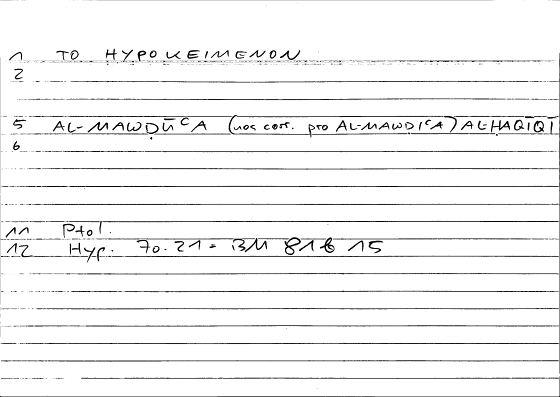 1 TO HYPOKEIMENON
2
5 AL-MAWḌŪᶜA (nos corr. pro AL-MAWDIᶜA) AL-ḤAQĪQĪ
6
11 Ptol.
12 Hyp. 70.21 = BM 81b 15